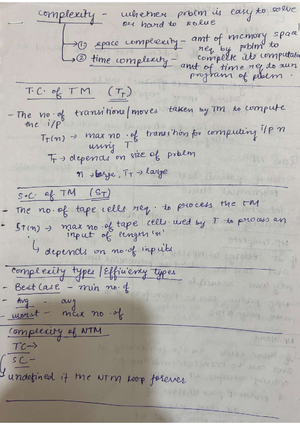 complexity - whether prblm is easy to solve
or hard to solve
→① space complexity - amt of memory space
req by prblm to
complete its computation
② time complexity - amt of time req to run
program of prblem.
T.C. of TM (T_T)
- The no. of transitions/moves taken by TM to compute
the i/p
T_T(n) → max no. of transition for computing i/p n
using T
T_T → depends on size of prblm
n → large, T_T → large
S.C. of TM (S_T)
- The no. of tape cells req. to process the TM
- S_T(n) → max no. of tape cells used by T to process an
input of length 'n'
↳ depends on no. of inputs
complexity types / Efficiency types
- Best Case - min no. of
- Avg - avg
- worst - max no. of
Complexity of NTM
TC →
SC -
undefined if the NTM loop forever